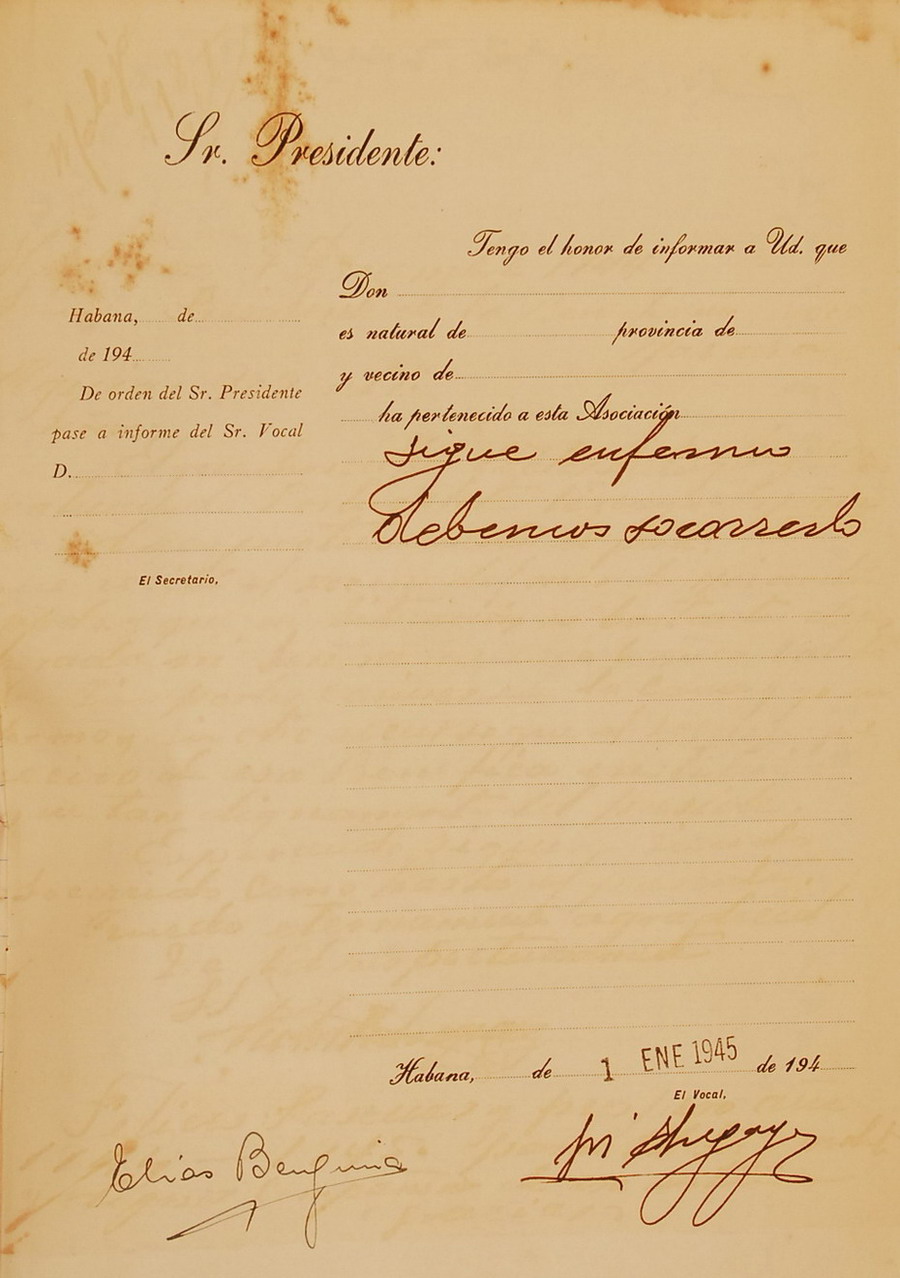 Sr. Presidente:
Tengo el honor de informar a Ud. que
Don
es natural de provincia de
y vecino de
ha pertenecido a esta Asociación
sigue enfermo
debemos socorrerlo
Habana, de
de 194
De orden del Sr. Presidente
pase a informe del Sr. Vocal
D.
El Secretario,
Habana, de 1 ENE 1945 de 194
El Vocal,
Elias